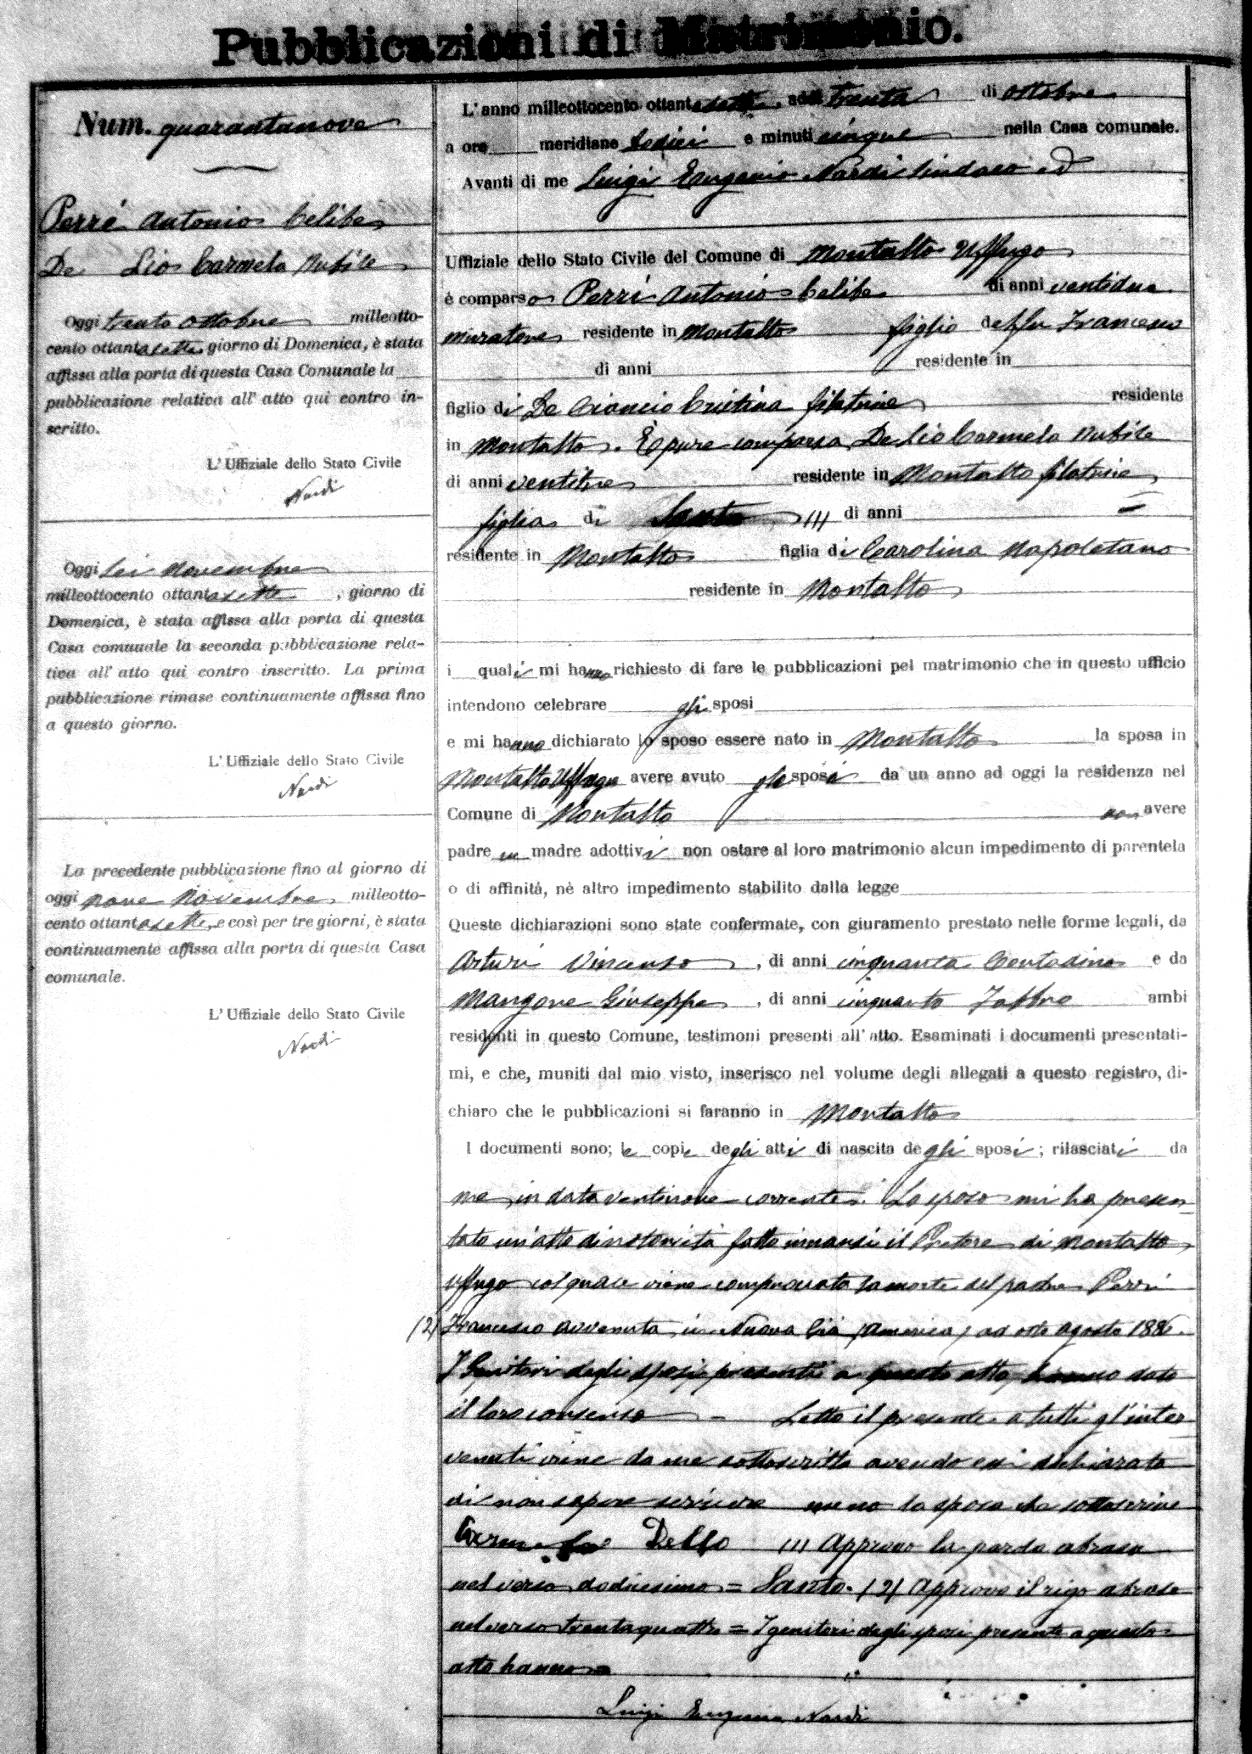 Pubblicazioni di Matrimonio.
Num. quarantanove
Perri Antonio Celibe
De Lio Carmela Nubile
Oggi trenta ottobre milleotto-
cento ottantasette giorno di Domenica, è stata
affissa alla porta di questa Casa Comunale la
pubblicazione relativa all' atto qui contro in-
scritto.
L' Uffiziale dello Stato Civile
Nardi
Oggi sei novembre
milleottocento ottantasette, giorno di
Domenica, è stata affissa alla porta di questa
Casa comunale la seconda pubblicazione rela-
tiva all' atto qui contro inscritto. La prima
pubblicazione rimase continuamente affissa fino
a questo giorno.
L' Uffiziale dello Stato Civile
Nardi
La precedente pubblicazione fino al giorno di
oggi nove Novembre milleotto-
cento ottantasette, e così per tre giorni, è stata
continuamente affissa alla porta di questa Casa
comunale.
L' Uffiziale dello Stato Civile
Nardi
L' anno milleottocento ottantasette, addì trenta di ottobre
a ore meridiane sedici e minuti cinque nella Casa comunale.
Avanti di me Luigi Eugenio Nardi Sindaco ed
Uffiziale dello Stato Civile del Comune di Montalto Uffugo
è comparso Perri Antonio Celibe di anni ventidue
muratore residente in Montalto figlio del fu Francesco
di anni residente in
figlio di De Ciancio Cristina filatrice residente
in Montalto. È pure comparsa De Lio Carmela Nubile
di anni ventitre residente in Montalto filatrice
figlia di Santo (1) di anni =
residente in Montalto figlia di Carolina Napoletano
residente in Montalto
i quali mi hanno richiesto di fare le pubblicazioni pel matrimonio che in questo ufficio
intendono celebrare gli sposi
e mi hanno dichiarato lo sposo essere nato in Montalto la sposa in
Montalto Uffugo avere avuto gli sposi da un anno ad oggi la residenza nel
Comune di Montalto non avere
padre e madre adottivi non ostare al loro matrimonio alcun impedimento di parentela
o di affinità, nè altro impedimento stabilito dalla legge
Queste dichiarazioni sono state confermate, con giuramento prestato nelle forme legali, da
Arturi Vincenzo, di anni cinquanta Contadino e da
Mangone Giuseppe, di anni cinquanta Fabbro ambi
residenti in questo Comune, testimoni presenti all' atto. Esaminati i documenti presentati-
mi, e che, muniti dal mio visto, inserisco nel volume degli allegati a questo registro, di-
chiaro che le pubblicazioni si faranno in Montalto
I documenti sono; le copie degli atti di nascita degli sposi; rilasciati da
me in data ventinove corrente. Lo sposo mi ha presen=
tato un'atto di notorietà fatto innanzi il Pretore di Montalto
Uffugo col quale viene comprovata la morte del padre Perri
(2) Francesco avvenuta in Nuova (America) ad otto agosto 1886.
I Genitori degli sposi presenti a questo atto, hanno dato
il loro consenso - Letto il presente a tutti gl'inter
venuti viene da me sottoscritto avendo essi dichiarato
di non sapere scrivere meno la sposa che sottoscrive
Carmela Dello (1) Approvo la parola abrasa
nel verso dodicesimo = Santo. (2) Approvo il rigo abraso
nel verso trentaquattro = I genitori degli sposi presenti a questo
atto hanno =
Luigi Eugenio Nardi